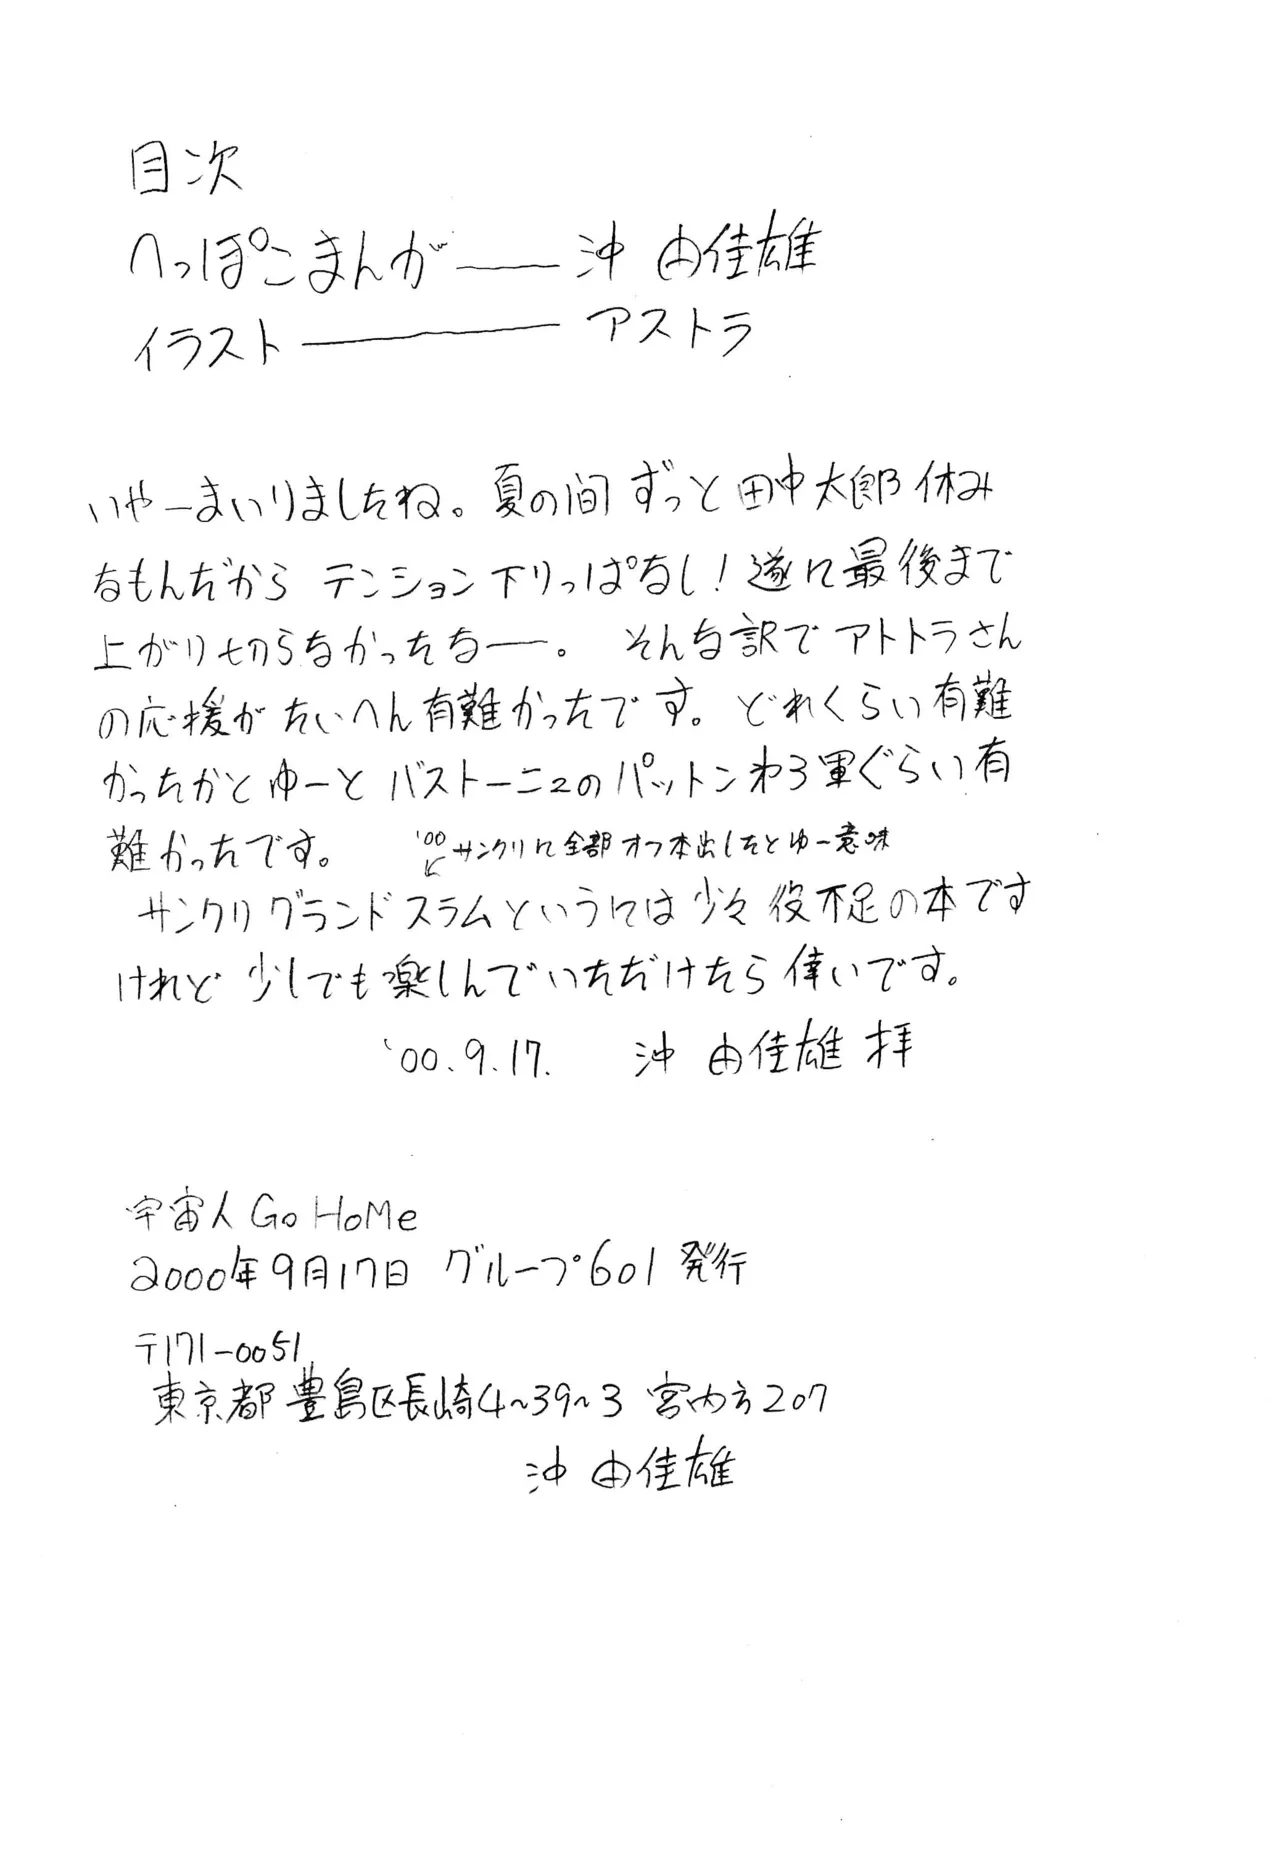 目次
へっぽこまんが――沖 由佳雄
イラスト――――アストラ
いやーまいりましたね。夏の間ずっと田中太郎休み
なもんだから テンション下りっぱなし!遂に最後まで
上がり切らなかったなー。 そんな訳でアトトラさん
の応援がたいへん有難かったです。どれくらい有難
かったかとゆーと バストーニュのパットン第3軍ぐらい有
難かったです。
'00 サンクリに全部オフ本出したとゆー意味
サンクリグランドスラムというには少々役不足の本です
けれど少しでも楽しんでいただけたら倖いです。
'00.9.17. 沖 由佳雄 拝
宇宙人 Go HoMe
2000年9月17日 グループ601発行
〒171-0051
東京都豊島区長崎4~39~3 宮内方207
沖 由佳雄